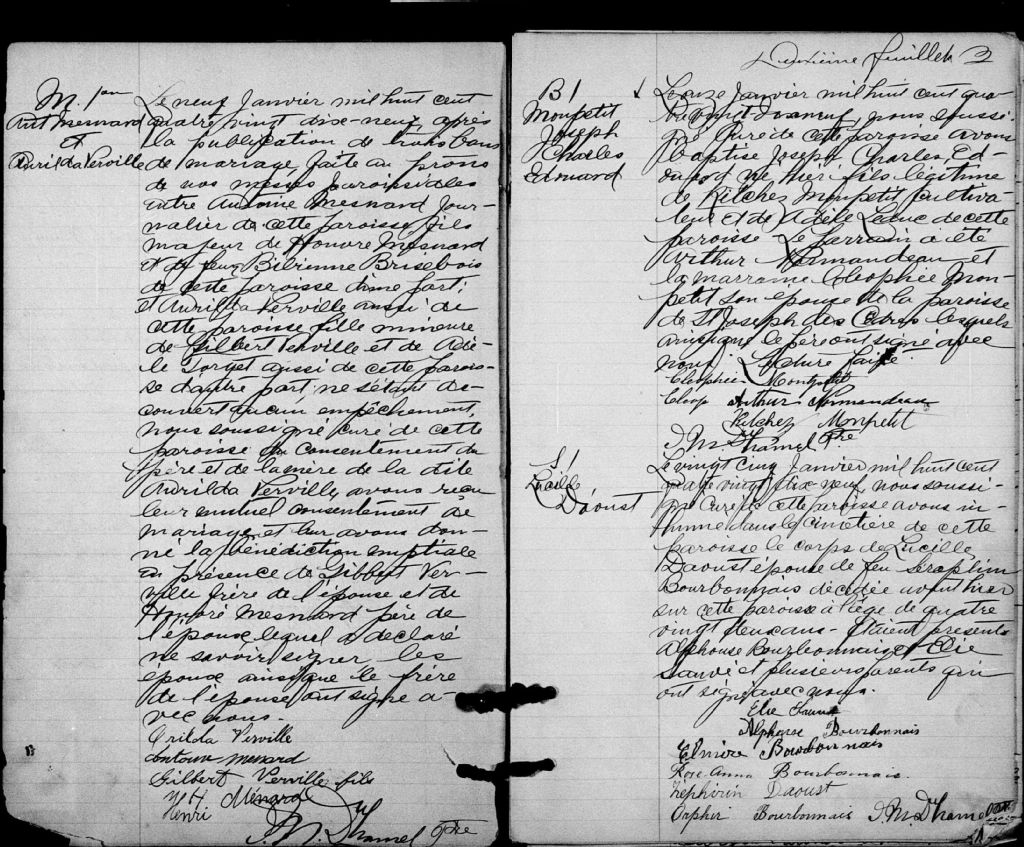 M. 1er
Ant Mesnard
et
Aurilda Verville
Le neuf Janvier mil huit cent
quatre vingt dix-neuf, après
la publication de trois bans
de mariage, faite au prône
de nos messes paroissiales
entre Antoine Mesnard Jour-
nalier de cette paroisse fils
majeur de Honoré Mesnard
et de feue Bibienne Brisebois
de cette paroisse d'une part;
et Aurilda Verville aussi de
cette paroisse fille mineure
de Gilbert Verville et de Adè-
le aussi de cette parois-
se d'autre part; ne s'étant dé-
couvert aucun empêchement,
nous soussigné curé de cette
paroisse du consentement du
père et de la mère de la dite
Aurilda Verville, avons reçu
leur mutuel consentement de
mariage et leur avons don-
né la bénédiction nuptiale
en présence de Gilbert Ver-
ville frère de l'épouse et de
Honoré Mesnard père de
l'époux lequel a déclaré
ne savoir signer, les
époux ainsi que le frère
de l'épouse ont signé a-
vec nous.
Orilda Verville
Antoine menard
Gilbert Verville fils
Henri Ménard
J. M. Duhamel Ptre
Deuxième feuillet 2
B 1
Monpetit
Joseph
Charles
Edouard
Le onze Janvier mil huit cent qua-
tre vingt dix neuf, nous soussi-
gné Curé de cette paroisse avons
baptisé Joseph, Charles, Ed-
ouard né hier fils légitime
de Kilchez Monpetit cultiva-
teur et de Adèle Leduc de cette
paroisse. Le parrain a été
Arthur Normandeau et
la marraine Cléophée Mon-
petit son épouse de la paroisse
de St Joseph des Cèdres lesquels
ainsi que le père ont signé avec
nous. Lecture faite.
Cléophée Montpetit
Cleop Arthur Normandeau
Kilchez Monpetit
J. M. Duhamel Ptre
S 1
Lucille
Daoust
Le vingt cinq Janvier mil huit cent
quatre vingt dix neuf nous soussi-
gné Curé de cette paroisse avons in-
humé dans le cimetière de cette
paroisse le corps de Lucille
Daoust épouse de feu Séraphin
Bourbonnais décédée avant hier
sur cette paroisse à l'âge de quatre
vingt deux ans. Étaient présents
Alphonse Bourbonnais et Elie
Sauvé et plusieurs parents qui
ont signé avec nous.
Elie Sauvé
Alphonse Bourbonnais
Elmire Bourbonnais
Rose Anna Bourbonnais.
Zéphirin Daoust
Orphir Bourbonnais J. M. Duhamel Ptre